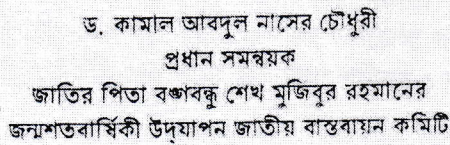 ড. কামাল আবদুল নাসের চৌধুরী
প্রধান সমন্বয়ক
জাতির পিতা বঙ্গবন্ধু শেখ মুজিবুর রহমানের
জন্মশতবার্ষিকী উদ্‌যাপন জাতীয় বাস্তবায়ন কমিটি